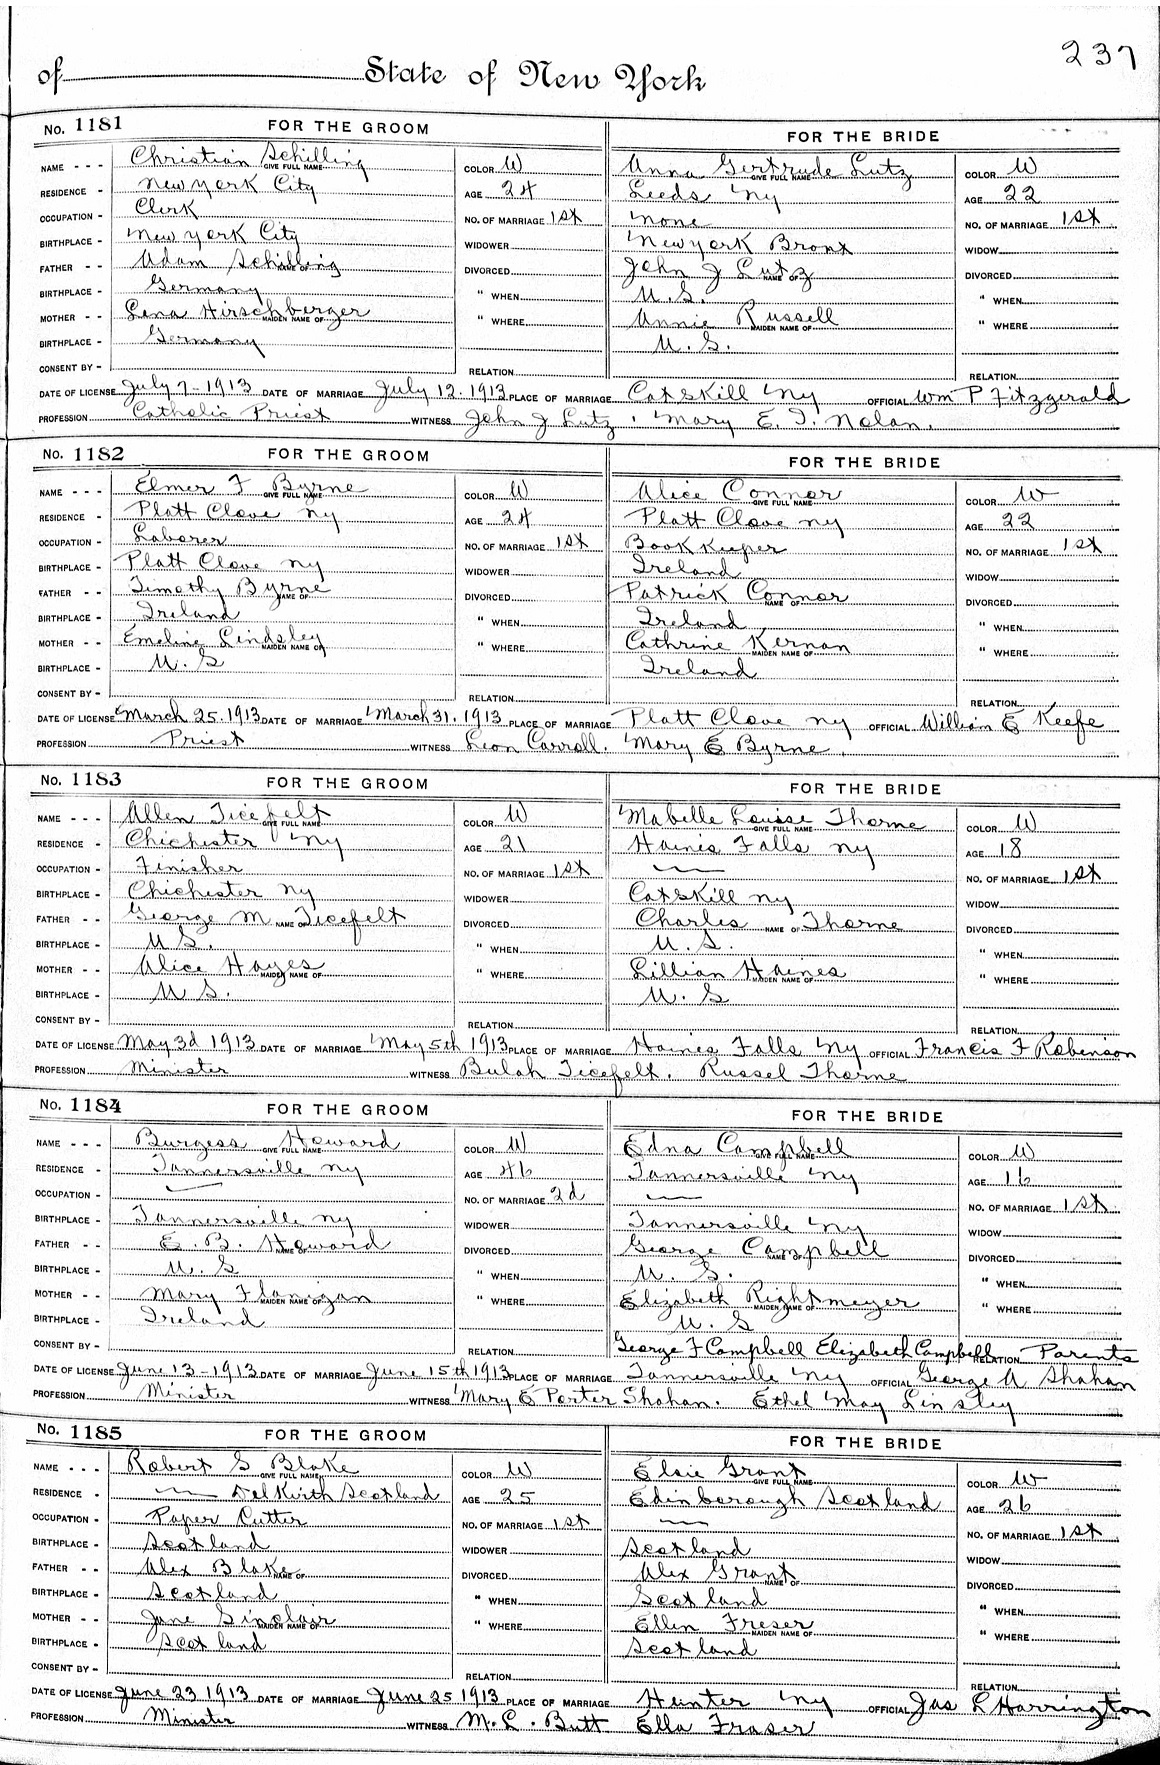 237
of State of New York
No. 1181 FOR THE GROOM FOR THE BRIDE
NAME - - - Christian Schilling GIVE FULL NAME COLOR W Anna Gertrude Lutz GIVE FULL NAME COLOR W
RESIDENCE - New York City AGE 24 Leeds Ny AGE 22
OCCUPATION - Clerk NO. OF MARRIAGE 1st None NO. OF MARRIAGE 1st
BIRTHPLACE - New York City WIDOWER New York Bronx WIDOW
FATHER - - Adam Schilling NAME OF DIVORCED John J Lutz NAME OF DIVORCED
BIRTHPLACE - Germany " WHEN U.S. " WHEN
MOTHER - - Lena Hirschberger MAIDEN NAME OF " WHERE Annie Russell MAIDEN NAME OF " WHERE
BIRTHPLACE - Germany U.S.
CONSENT BY - RELATION RELATION
DATE OF LICENSE July 7-1913 DATE OF MARRIAGE July 12.1913 PLACE OF MARRIAGE Catskill Ny OFFICIAL Wm P Fitzgerald
PROFESSION Catholic Priest WITNESS John J Lutz. Mary E. T. Nolan.
No. 1182 FOR THE GROOM FOR THE BRIDE
NAME - - - Elmer F Byrne GIVE FULL NAME COLOR W Alice Connor GIVE FULL NAME COLOR W
RESIDENCE - Platt Clove Ny AGE 24 Platt Clove Ny AGE 22
OCCUPATION - Laborer NO. OF MARRIAGE 1st Book Keeper NO. OF MARRIAGE 1st
BIRTHPLACE - Platt Clove Ny WIDOWER Ireland WIDOW
FATHER - - Timothy Byrne NAME OF DIVORCED Patrick Connor NAME OF DIVORCED
BIRTHPLACE - Ireland " WHEN Ireland " WHEN
MOTHER - - Emeline Lindsley MAIDEN NAME OF " WHERE Cathrine Kernan MAIDEN NAME OF " WHERE
BIRTHPLACE - U.S Ireland
CONSENT BY - RELATION RELATION
DATE OF LICENSE March 25.1913 DATE OF MARRIAGE March 31. 1913 PLACE OF MARRIAGE Platt Clove Ny OFFICIAL William E Keefe
PROFESSION Priest WITNESS Leon Carroll. Mary E Byrne.
No. 1183 FOR THE GROOM FOR THE BRIDE
NAME - - - Allen Ticefelt GIVE FULL NAME COLOR W Mabelle Louise Thorne GIVE FULL NAME COLOR W
RESIDENCE - Chichester Ny AGE 21 Haines Falls Ny AGE 18
OCCUPATION - Finisher NO. OF MARRIAGE 1st NO. OF MARRIAGE 1st
BIRTHPLACE - Chichester Ny WIDOWER Catskill Ny WIDOW
FATHER - - George M Ticefelt NAME OF DIVORCED Charles Thorne NAME OF DIVORCED
BIRTHPLACE - U S. " WHEN U. S. " WHEN
MOTHER - - Alice Hayes MAIDEN NAME OF " WHERE Lillian Haines MAIDEN NAME OF " WHERE
BIRTHPLACE - U S. U. S
CONSENT BY - RELATION RELATION
DATE OF LICENSE May 3d 1913 DATE OF MARRIAGE May 5th 1913 PLACE OF MARRIAGE Haines Falls Ny OFFICIAL Francis F Robinson
PROFESSION Minister WITNESS Bulah Ticefelt. Russel Thorne
No. 1184 FOR THE GROOM FOR THE BRIDE
NAME - - - Burgess Howard GIVE FULL NAME COLOR W Edna Campbell GIVE FULL NAME COLOR W
RESIDENCE - Tannersville Ny AGE 46 Tannersville Ny AGE 16
OCCUPATION - NO. OF MARRIAGE 2d NO. OF MARRIAGE 1st
BIRTHPLACE - Tannersville Ny WIDOWER Tannersville Ny WIDOW
FATHER - - E. B. Howard NAME OF DIVORCED George Campbell NAME OF DIVORCED
BIRTHPLACE - U. S " WHEN U. S. " WHEN
MOTHER - - Mary Flanigan MAIDEN NAME OF " WHERE Elizabeth Rightmeyer MAIDEN NAME OF " WHERE
BIRTHPLACE - Ireland U. S
CONSENT BY - RELATION George F Campbell Elizabeth Campbell RELATION Parents
DATE OF LICENSE June 13-1913 DATE OF MARRIAGE June 15th 1913 PLACE OF MARRIAGE Tannersville Ny OFFICIAL George A Shahan
PROFESSION Minister WITNESS Mary E Porter Shahan. Ethel May Linsley
No. 1185 FOR THE GROOM FOR THE BRIDE
NAME - - - Robert S Blake GIVE FULL NAME COLOR W Elsie Grant GIVE FULL NAME COLOR W
RESIDENCE - Delkirth Scotland AGE 25 Edinborough Scotland AGE 26
OCCUPATION - Paper Cutter NO. OF MARRIAGE 1st NO. OF MARRIAGE 1st
BIRTHPLACE - Scotland WIDOWER Scotland WIDOW
FATHER - - Alex Blake NAME OF DIVORCED Alex Grant NAME OF DIVORCED
BIRTHPLACE - Scotland " WHEN Scotland " WHEN
MOTHER - - Jane Sinclair MAIDEN NAME OF " WHERE Ellen Freser MAIDEN NAME OF " WHERE
BIRTHPLACE - Scotland Scotland
CONSENT BY - RELATION RELATION
DATE OF LICENSE June 23 1913 DATE OF MARRIAGE June 25 1913 PLACE OF MARRIAGE Hunter Ny OFFICIAL Jas L Harrington
PROFESSION Minister WITNESS M. L. Butt Ella Fraser